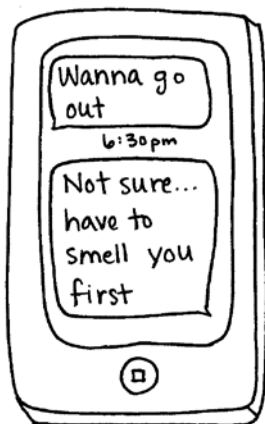 Wanna go
out
6:30pm
Not sure...
have to
smell you
first